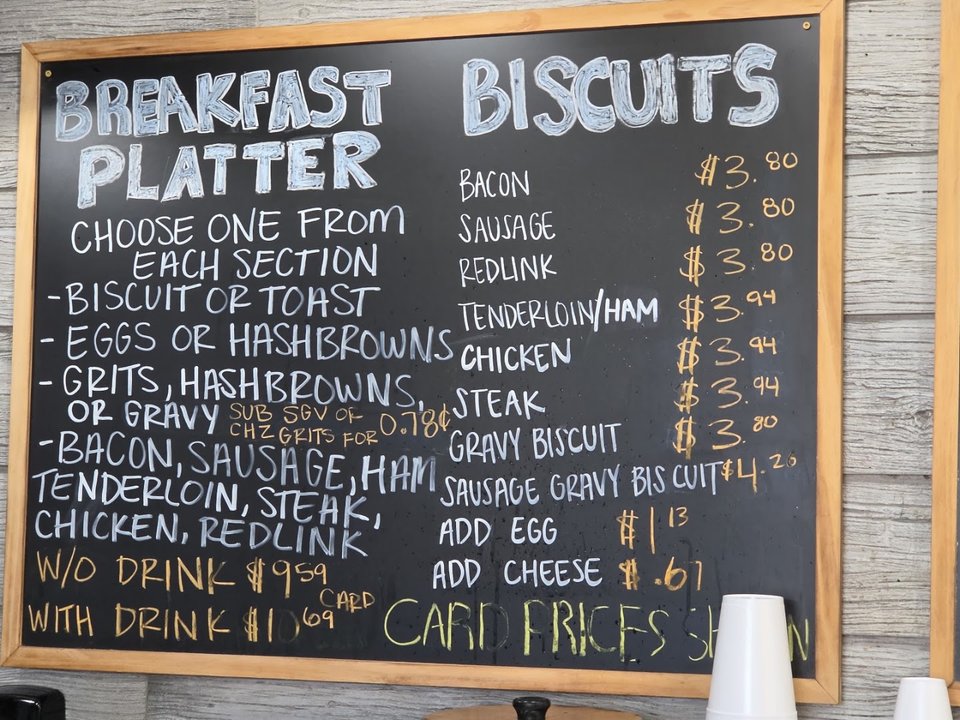 BREAKFAST
PLATTER
CHOOSE ONE FROM
EACH SECTION
-BISCUIT OR TOAST
- EGGS OR HASHBROWNS
- GRITS, HASHBROWNS,
OR GRAVY SUB SGV OR
CHZ GRITS FOR 0.78¢
-BACON, SAUSAGE, HAM
TENDERLOIN, STEAK,
CHICKEN, REDLINK
W/O DRINK $9.59
CARD
WITH DRINK $10.69
BISCUITS
BACON $3.80
SAUSAGE $3.80
REDLINK $3.80
TENDERLOIN/HAM $3.94
CHICKEN $3.94
STEAK $3.94
GRAVY BISCUIT $3.80
SAUSAGE GRAVY BISCUIT $4.26
ADD EGG $1.13
ADD CHEESE $.67
CARD PRICES